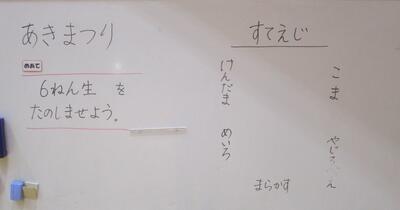 あきまつり
めあて
6ねん生 を
たのしませよう。
すてえじ
こま
けんだま
めいろ
まらかす